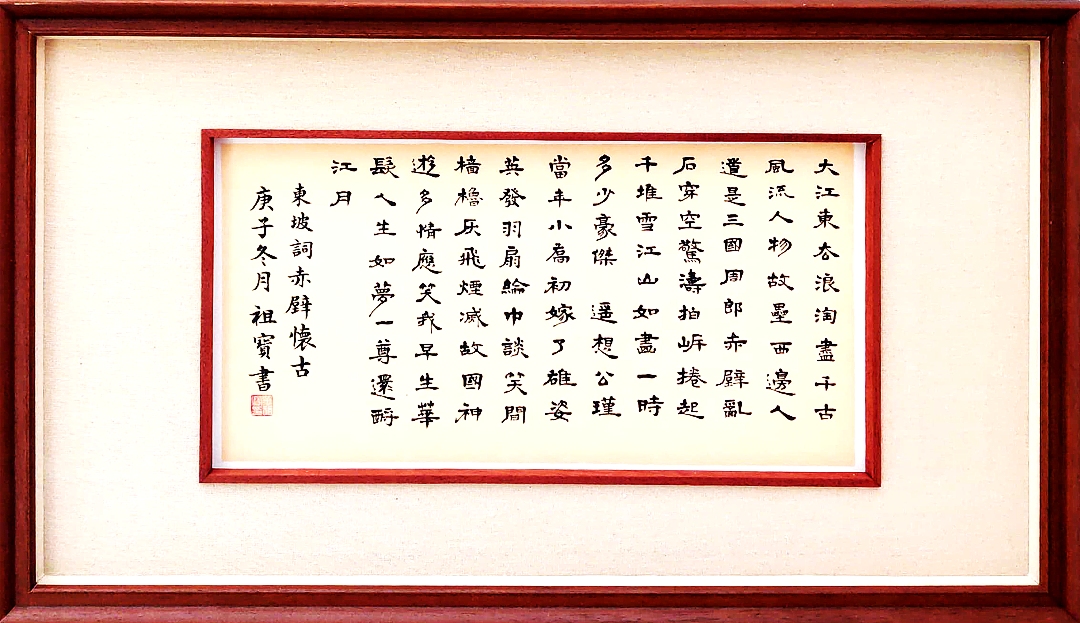 大江東去浪淘盡千古
風流人物故壘西邊人
道是三國周郎赤壁亂
石穿空驚濤拍岸捲起
千堆雪江山如畫一時
多少豪傑 遥想公瑾
當年小喬初嫁了雄姿
英發羽扇綸巾談笑間
檣櫓灰飛煙滅故國神
遊多情應笑我早生華
髮人生如夢一尊還酹
江月
東坡詞赤壁懷古
庚子冬月 祖寶書